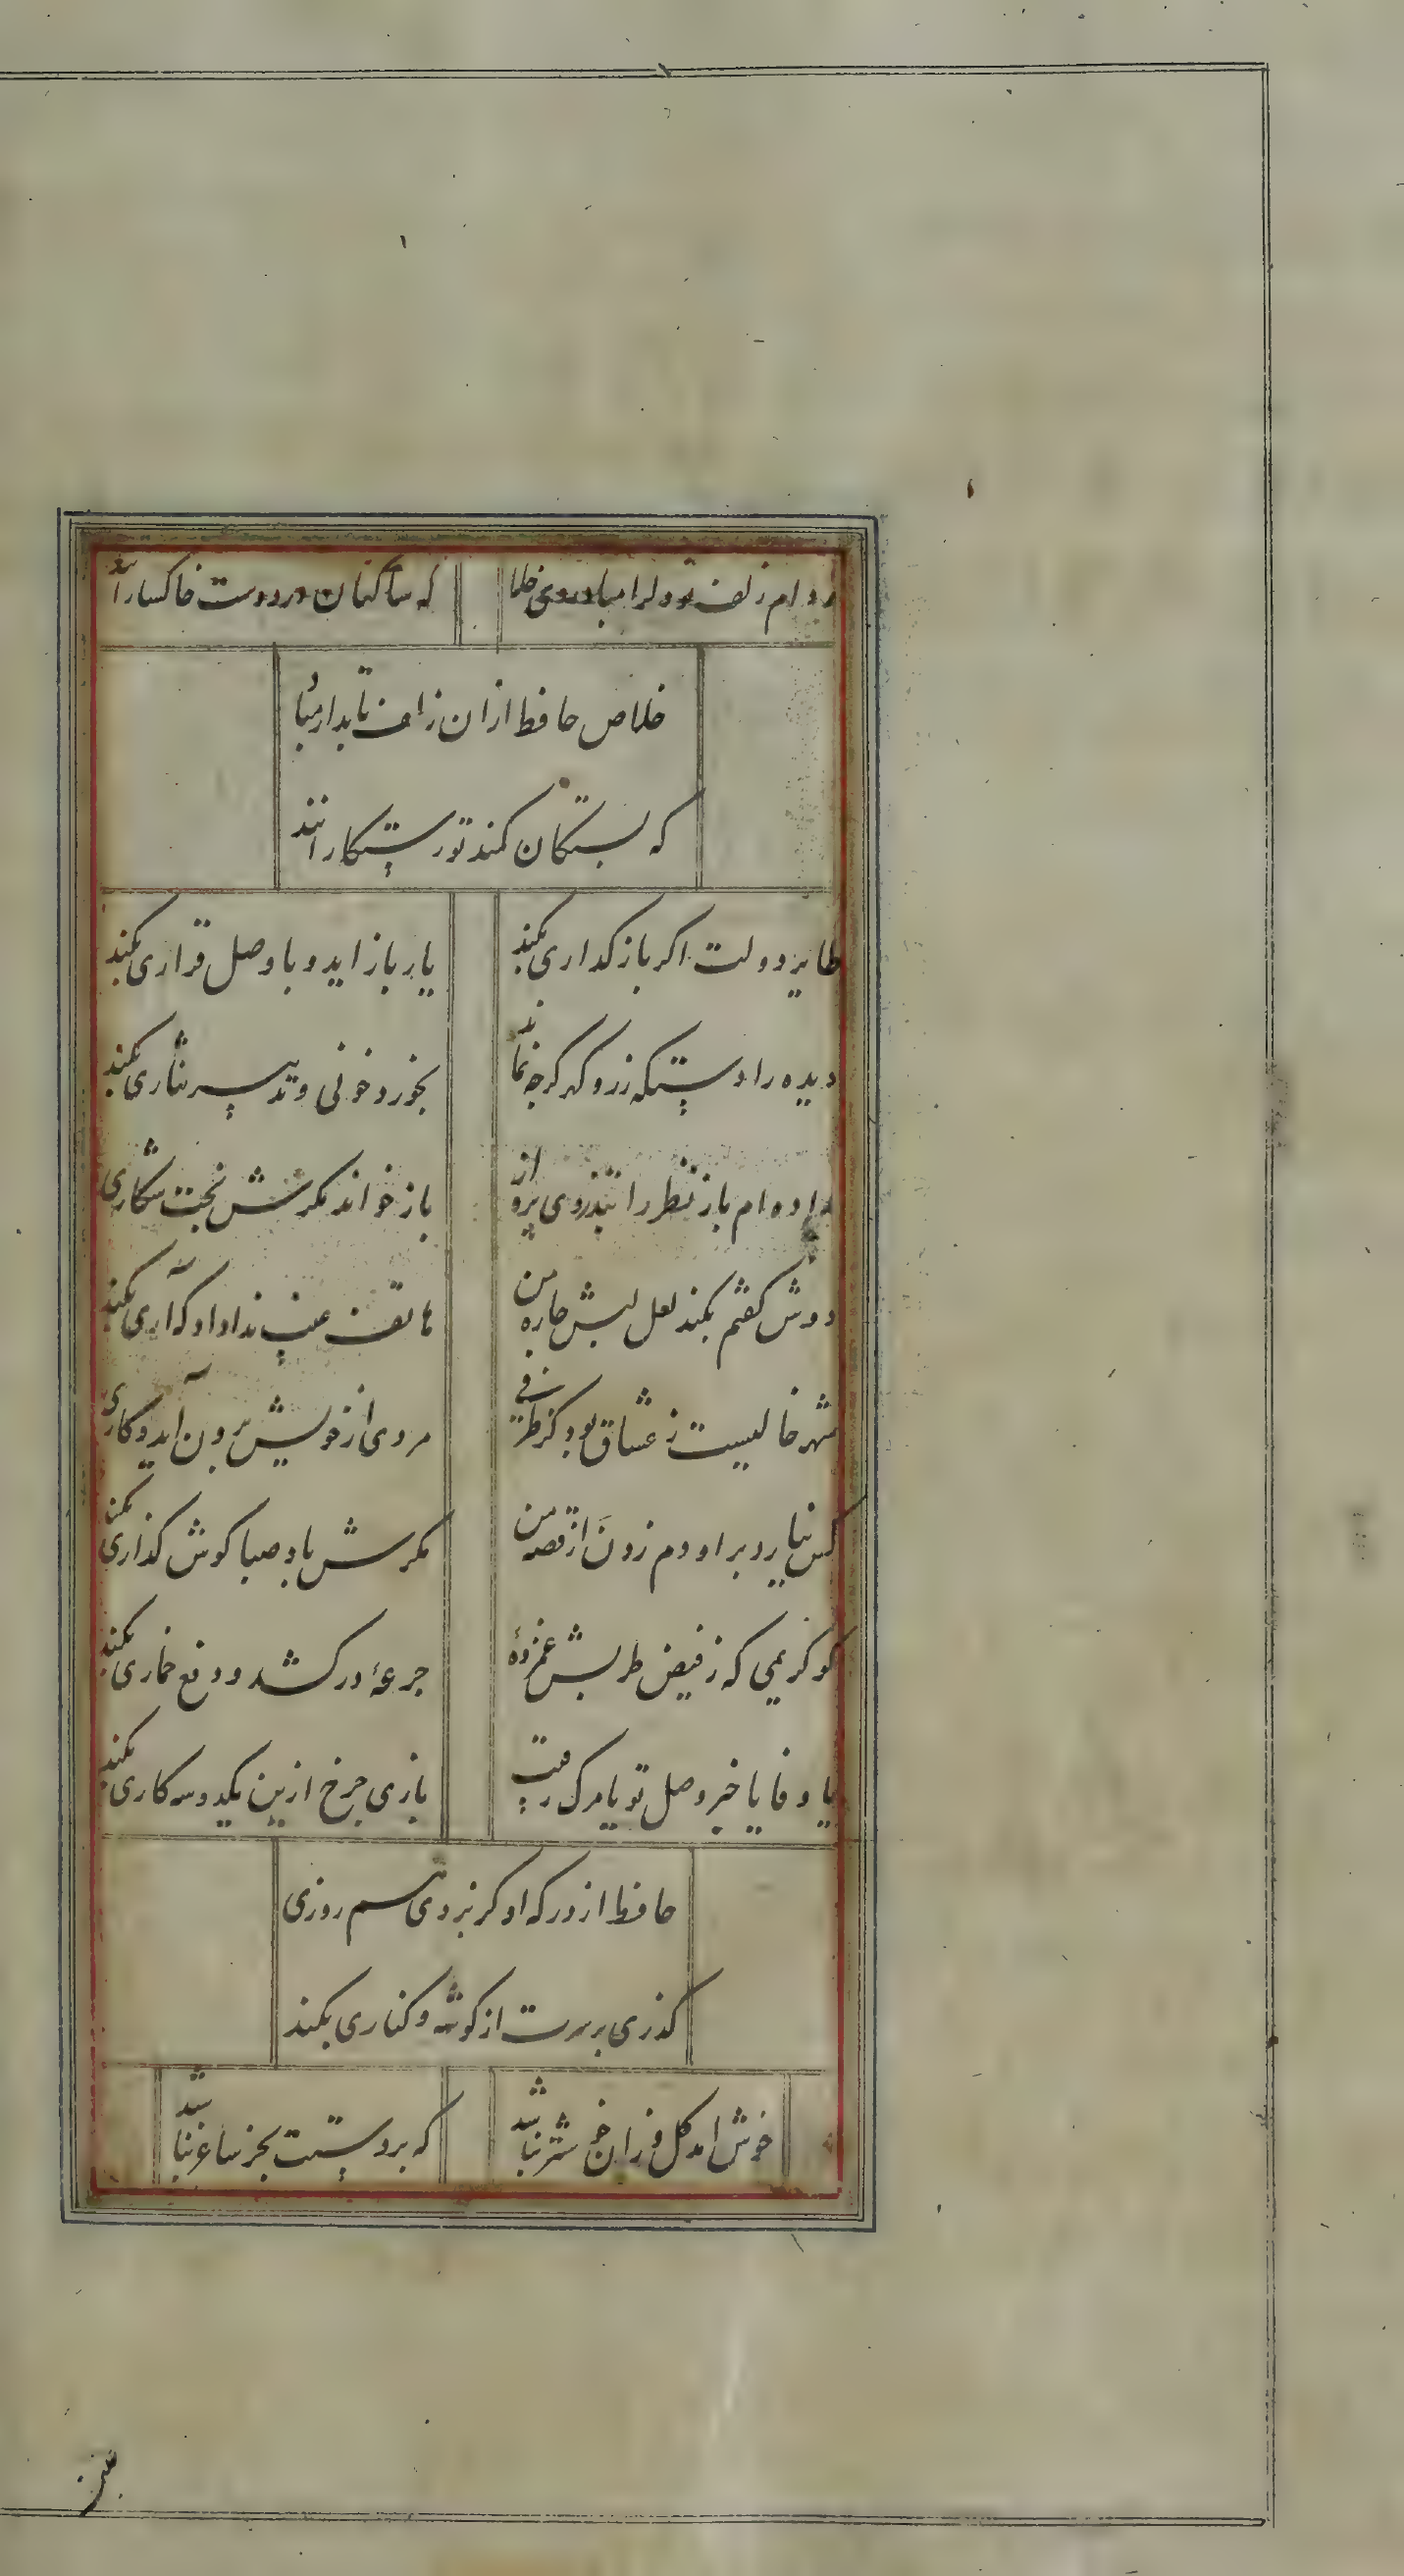 ز دام زلف تو دلرا مبادروی خلا که ساکنان در دوست خاکسارانند
خلاص حافظ ازان زلف تابدار مباد
که بستکان کمند تو رستکارانند
طایر دولت اکر باز کداری بکند یار باز اید و با وصل قراری بکند
دیده را دستکه زر و کهر کرچه نماند بخورد خونی و تدبیر نثاری بکند
داده ام باز نظر را بتذروی پرواز باز خواند مکرش بخت شکاری
دوش کفتم بکند لعل لبش چاره من هاتف غیب ندا داد که آری بکند
شهر خالیست ز عشاق بود کز طرفی مردی از خویش برون آید و کاری
کس نیارد بر او دم زدن از قصه من مکرش باد صبا کوش کذاری بکند
کو کریمی که ز فیض طربش غمزدهٔ جرعهٔ درکشد و دفع خماری بکند
یا وفا یا خبر وصل تو یا مرک رقیب بازی چرخ ازین یکدوسه کاری بکند
حافظا از در که او کر نروی هم روزی
کذری بر سرت از کوشه و کناری بکند
خوش امد کل وزان خوشتر نباشد که بر دستت بجز ساغر نباشد